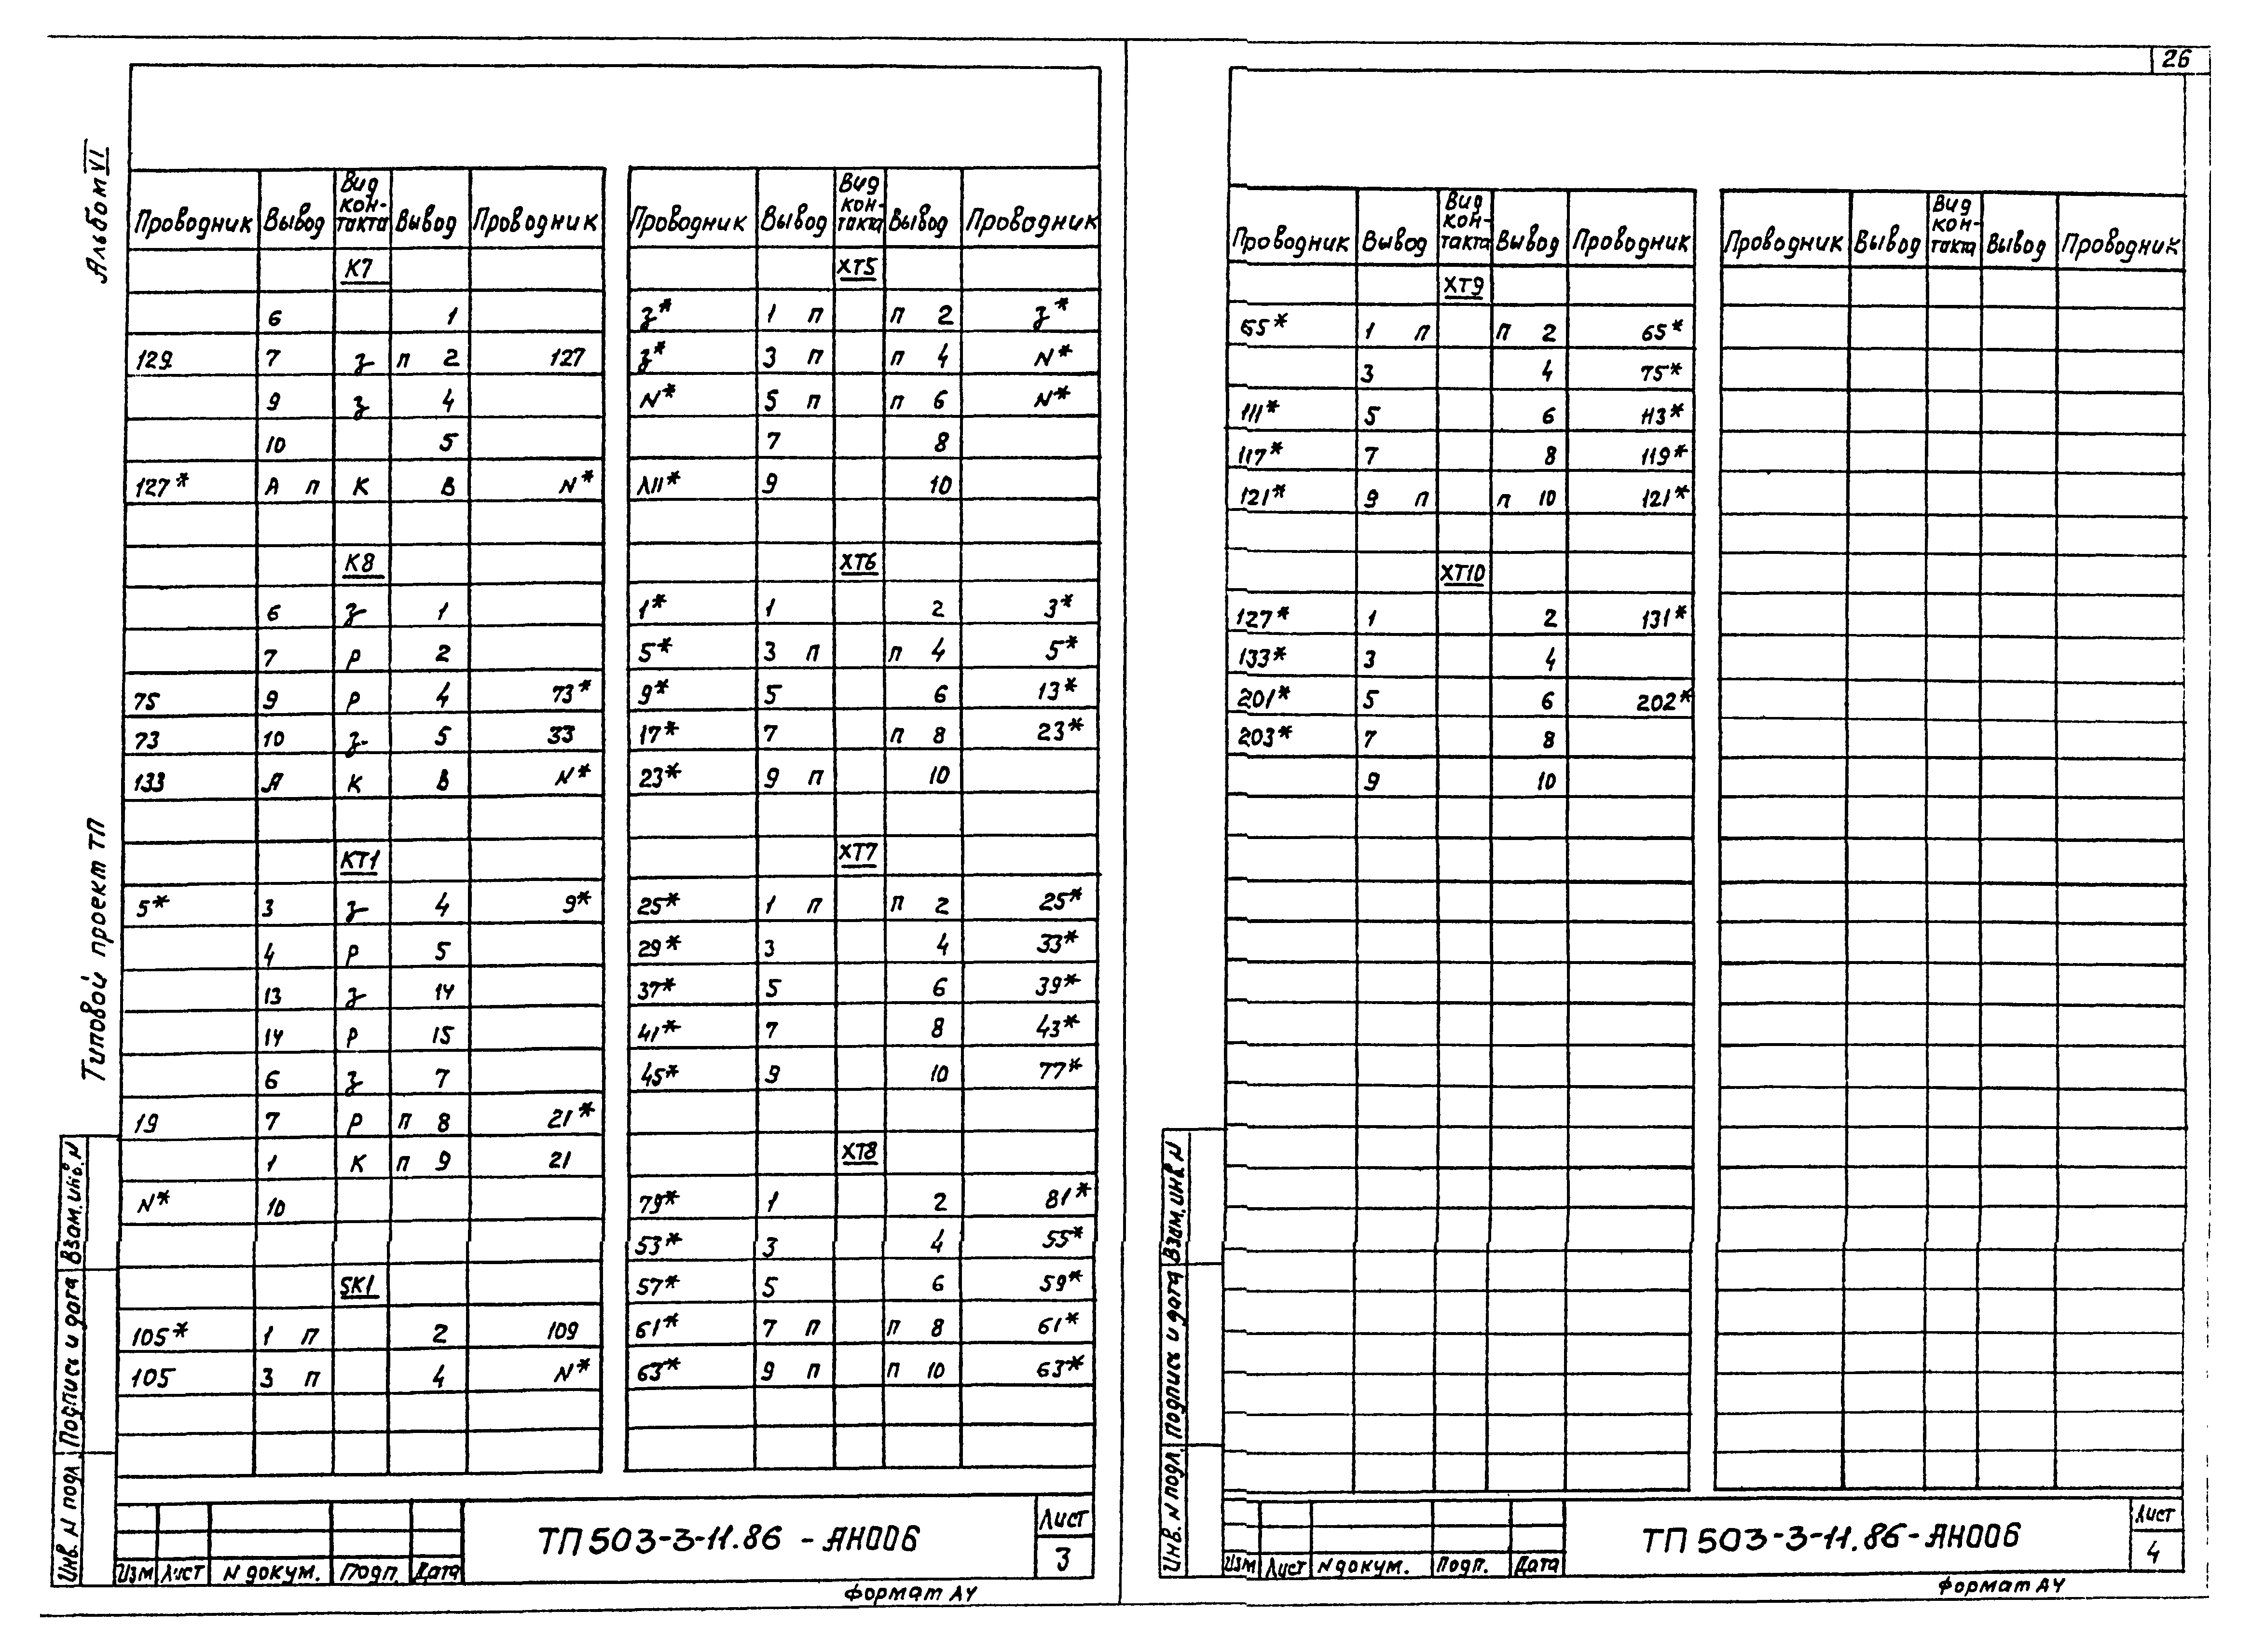 26
Альбом VI
Типовой проект ТП
Проводник Вывод Вид кон-такта Вывод Проводник
К7
6 1
129 7 з п 2 127
9 з 4
10 5
127* А п К В N*
К8
6 з 1
7 Р 2
75 9 Р 4 73*
73 10 з 5 33
133 А К В N*
КТ1
5* 3 з 4 9*
4 Р 5
13 з 14
14 Р 15
6 з 7
19 7 Р п 8 21*
1 К п 9 21
N* 10
SK1
105* 1 п 2 109
105 3 п 4 N*
Проводник Вывод Вид кон-такта Вывод Проводник
ХТ5
з* 1 п п 2 з*
з* 3 п п 4 N*
N* 5 п п 6 N*
7 8
9 10
ХТ6
1* 1 2 3*
5* 3 п п 4 5*
9* 5 6 13*
17* 7 п 8 23*
23* 9 п 10
ХТ7
25* 1 п п 2 25*
29* 3 4 33*
37* 5 6 39*
41* 7 8 43*
45* 9 10 77*
ХТ8
79* 1 2 81*
53* 3 4 55*
57* 5 6 59*
61* 7 п п 8 61*
63* 9 п п 10 63*
Инв. N подл. Подпись и дата Взам. инв. N
Изм Лист N докум. Подп. Дата
ТП 503-3-11.86 - АН006
Лист
3
Формат А4
Проводник Вывод Вид кон-такта Вывод Проводник
ХТ9
65* 1 п п 2 65*
3 4 75*
111* 5 6 113*
117* 7 8 119*
121* 9 п п 10 121*
ХТ10
127* 1 2 131*
133* 3 4
201* 5 6 202*
203* 7 8
9 10
Проводник Вывод Вид кон-такта Вывод Проводник
Инв. N подл. Подпись и дата Взам. инв. N
Изм Лист N докум. Подп. Дата
ТП 503-3-11.86-АН006
Лист
4
Формат А4